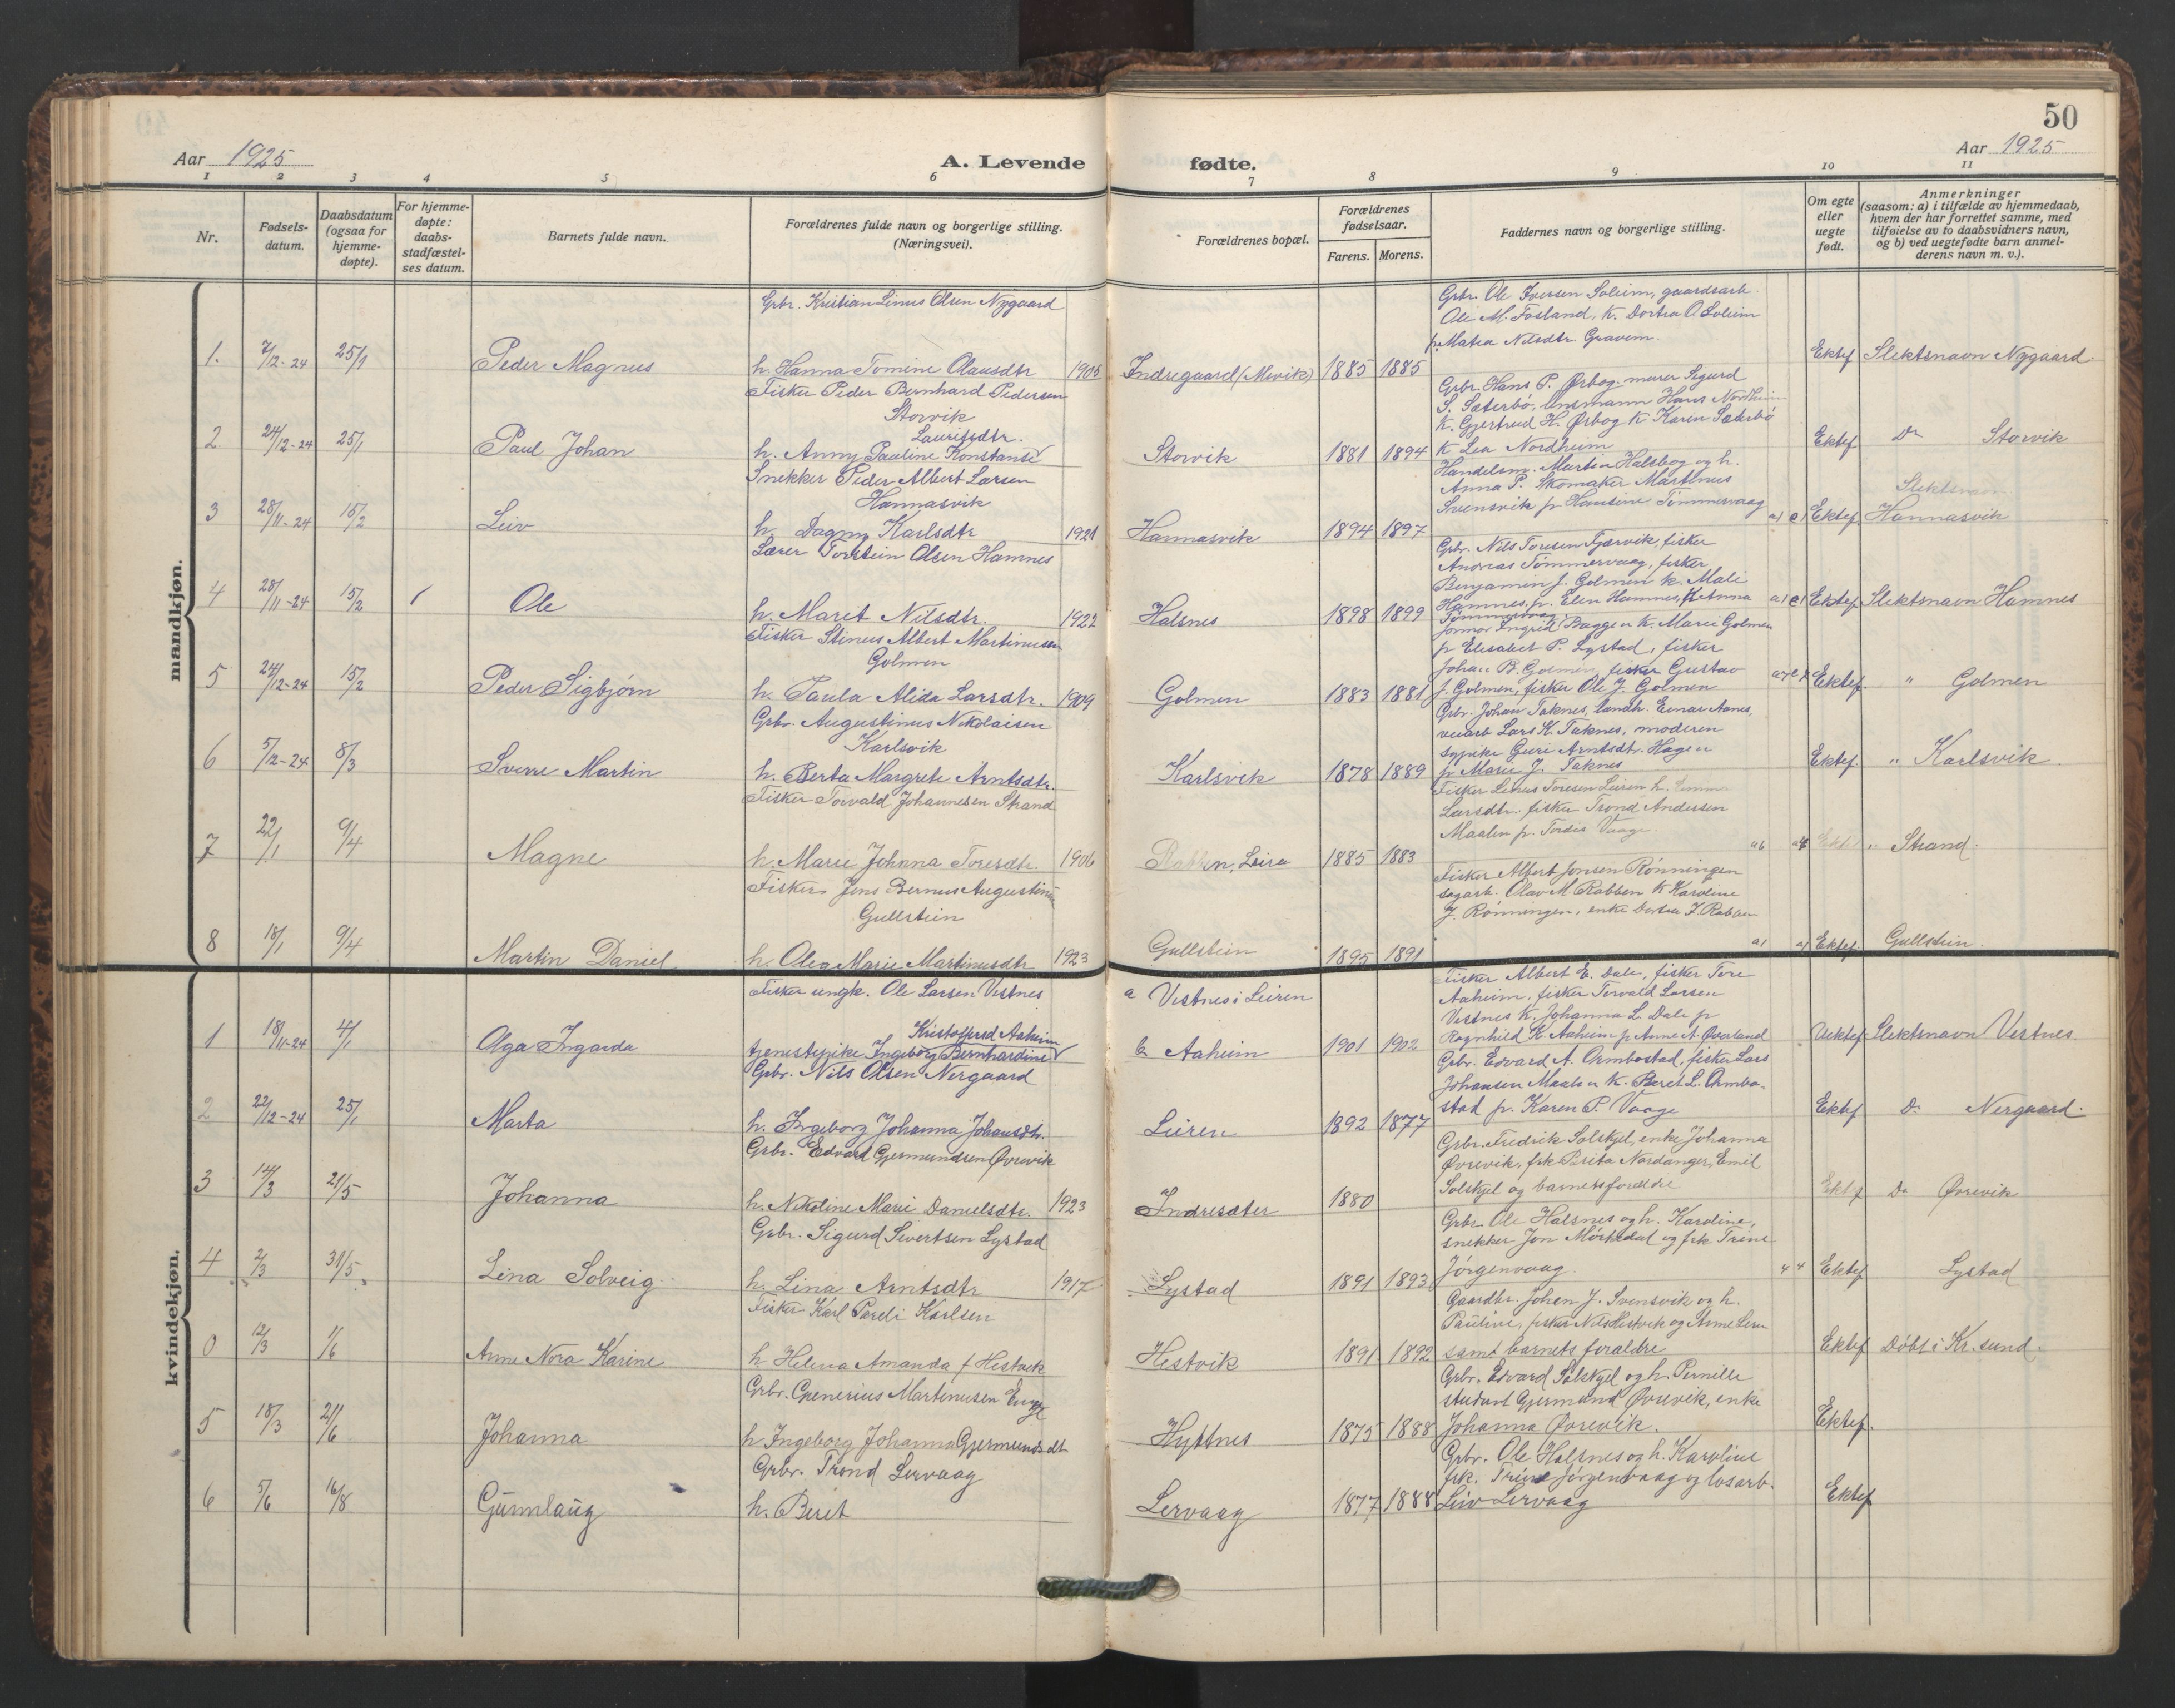 50
Aar 1925
A. Levende fødte.
Aar 1925
1 2 3 4 5 6 7 8 9 10 11
Nr.
Fødsels-
datum.
Daabsdatum
(ogsaa for
hjemme-
døpte).
For hjemme-
døpte:
daabs-
stadfæstel-
ses datum.
Barnets fulde navn.
Forældrenes fulde navn og borgerlige stilling.
(Næringsvei).
Forældrenes bopæl.
Forældrenes
fødselsaar.
Farens. Morens.
Faddernes navn og borgerlige stilling.
Om egte
eller
uegte
født.
Anmerkninger
(saasom: a) i tilfælde av hjemmedaab,
hvem der har forrettet samme, med
tilføielse av to daabsvidners navn,
og b) ved uegtefødte barn anmel-
derens navn m. v.).
mandkjøn.
Grbr. Kristian Linus Olsen Nygaard
Grbr. Ole Iversen Soleim, gaardsarb.
Ole M. Fosland, K. Dortea O. Soleim
p. Matea Nilsdtr. Gravem.
1. 7/12-24 25/1 Peder Magnus h. Hanna Tomine Olausdtr 1905 Indregaard (Mevik) 1885 1885 Ektef Slektsnavn Nygaard.
Fisker Peder Bernhard Pedersen
Storvik
Lauritsdtr.
Grbr. Hans P. Ørbog. murer Sigurd
S. Sæterbö, lensmann Hans Nordheim
K. Gjertrud H. Ørbog K Karen Sæterbö
K Lea Nordheim
2 24/12-24 25/1 Paul Johan h. Anny Pauline Konstanse Storvik 1881 1894 Ektef Do Storvik
Snekker Peder Albert Larsen
Hannasvik
Handelsm. Martin Halsbog og h.
Anna P. Skomaker Martinus
Svensvik p Hansine Tömmervaag
Slektsnavn
3 28/11-24 15/2 Leiv h. Dagny Karlsdtr 1921 Hannasvik 1894 1897 Ektef Hannasvik
Lærer Torstein Olsen Hamnes
Grbr. Nils Toresen Tjærvik, fisker
Andreas Tömmervaag, fisker
Benjamin J. Golmen K. Mali
Hamnes, p. Elen Hamnes, K Anna
Tömmervaag
4 28/11-24 15/2 / Ole h. Marit Nilsdtr. 1922 Halsnes 1898 1899 Ektef Slektsnavn Hamnes
Fisker Stinus Albert Martinusen
Golmen
jormor Ingrid Bagge n K. Marie Golmen
p Elisabet P. Lystad, fisker
Johan B. Golmen, fisker Gustav
J. Golmen, fisker Ole J. Golmen
5 24/12-24 15/2 Peder Sigbjörn h. Paula Alida Larsdtr. 1909 Golmen 1883 1881 Ektef. " Golmen
Grbr. Augustinus Nikolaisen
Karlsvik
Grbr. Johan Taknes, landh. Einar Aanes,
veiarb Lars K. Taknes, moderen
sypike Guri Arntsdtr. Hagen
p Marie J. Taknes
6 5/12-24 8/3 Sverre Martin h. Berta Margrete Arntsdtr. Karlsvik 1878 1889 Ektef. " Karlsvik.
Fisker Torvald Johannesen Strand
Fisker Linus Toresen Leiren h.
Larsdtr. fisker Trond Andersen
Maalen p. Tordis Vaage.
7 22/1 9/4 Magne h. Marie Johanna Toresdtr. 1906 Rabben, Leira 1885 1883 Ektef " Strand.
Fisker Jens Bernus Augustin
Gullstein
Fisker Albert Jonsen Rönningen
sagarb. Olav M. Rabben K Karoline
J. Rönningen, enke Bertea I. Rabben
8 18/1 9/4 Martin Daniel h. Olea Marie Martinusdtr 1923 Gullstein 1895 1891 Ektef. Gullstein.
kvindekjøn.
Fisker ungk. Ole Larsen Vestnes
a Vestnes i Leiren
Fisker Albert E. Dale, fisker Tore
Aaheim, fisker Torvald Larsen
Vestnes K. Johanna L. Dale p
Ragnhild K. Aaheim p Anne A. Øverland
Kristoffersd Aaheim
1 18/11-24 4/1 Olga Ingarda tjenestepike Ingeborg Bernhardine b Aaheim 1901 1902 Uektef Slektsnavn Vestnes.
Grbr. Nils Olsen Nergaard
Grbr. Edvard A. Ormbostad, fisker Lars
Johansen Maalen K. Beret L. Ormbo-
stad p. Karen P. Vaage
2 22/12-24 25/1 Marta h. Ingeborg Johanna Johansdtr. Leiren 1892 1877 Ektef Do Nergaard.
Grbr. Edvard Gjermundsen Øvrevik
Grbr. Fredrik Solskjel, enke Johanna
Øvrevik, frk Brita Nordanger, Emil
Solskjel og barnets forældre
3 14/3 21/5 Johanna h. Nikoline Marie Danielsdtr. 1923 Indresæter 1880 Ektef Do Øvrevik
Grbr. Sigurd Sivertsen Lystad
Grbr. Ole Halsnes og h. Karoline,
snekker Jon Mörkedal og frk Trine
Jörgenvaag.
4 2/3 31/5 Lina Solveig h. Lina Arntsdtr 1917 Lystad 1891 1893 Ektef Lystad
Fisker Karl Pareli Karlsen
Gaardbr. Johan J. Svensvik og h.
Pauline, fisker Nils Hestvik og Anne
samt barnets foraldre
0 12/3 1/6 Anne Nora Karine h Helena Amanda f Hestvik Hestvik 1891 1892 Ektef Döbt i Kr.sund.
Grbr. Generius Martinusen Enge
Grbr. Edvard Solskjel og h. Pernille
student Gjermund Øvrevik, enke
Johanna Øvrevik.
5 18/3 21/6 Johanna h Ingeborg Johanna Gjermundsdt Hyttnes 1875 1888 Ektef.
Grbr. Trond Lervaag
Grbr. Ole Halsnes og h. Karoline
frk. Trine Jörgenvaag og losarb.
Leiv Lervaag
6 5/6 16/8 Gunnlaug h. Beret Lervaag 1877 1888 Ektef